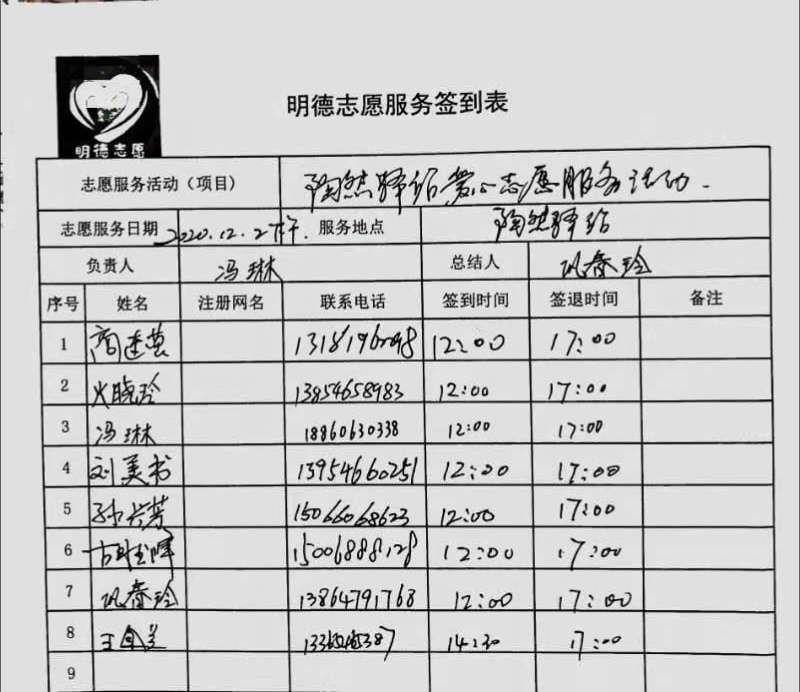 明德志愿
明德志愿服务签到表
志愿服务活动（项目） 陶然驿站爱心志愿服务活动.
志愿服务日期 2020.12.27下午. 服务地点 陶然驿站
负责人 冯琳 总结人 巩春玲
序号 姓名 注册网名 联系电话 签到时间 签退时间 备注
1 12:00 17:00
2 晓玲 13854658983 12:00 17:00
3 冯琳 18860630338 12:00 17:00
4 刘美书 13954660251 12:00 17:00
5 孙兴芳 15066068623 12:00 17:00
6 15006888128 12:00 17:00
7 巩春玲 13864791768 12:00 17:00
8 王 14:30 17:00
9